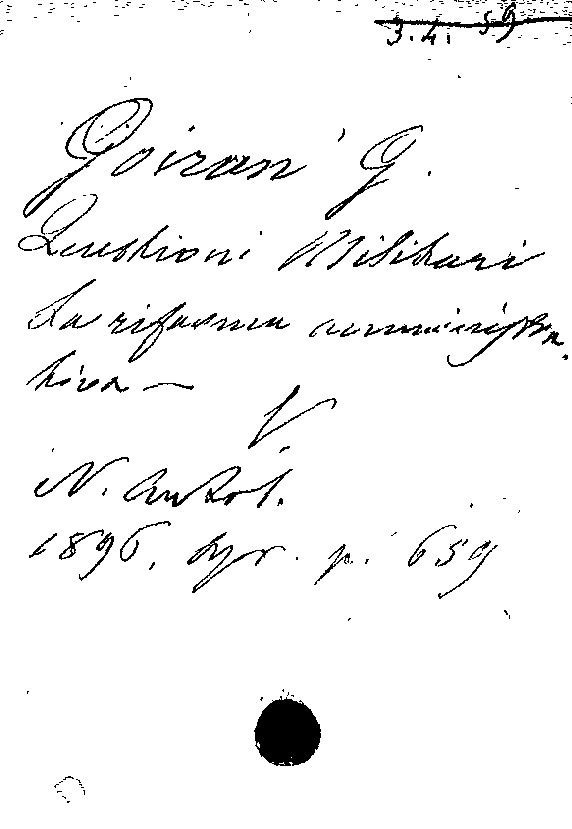 3.4.59
Goiran G.
Questioni Militari
La riforma amministra-
tiva —
V.
N. Antol.
1896, Apr. p. 659